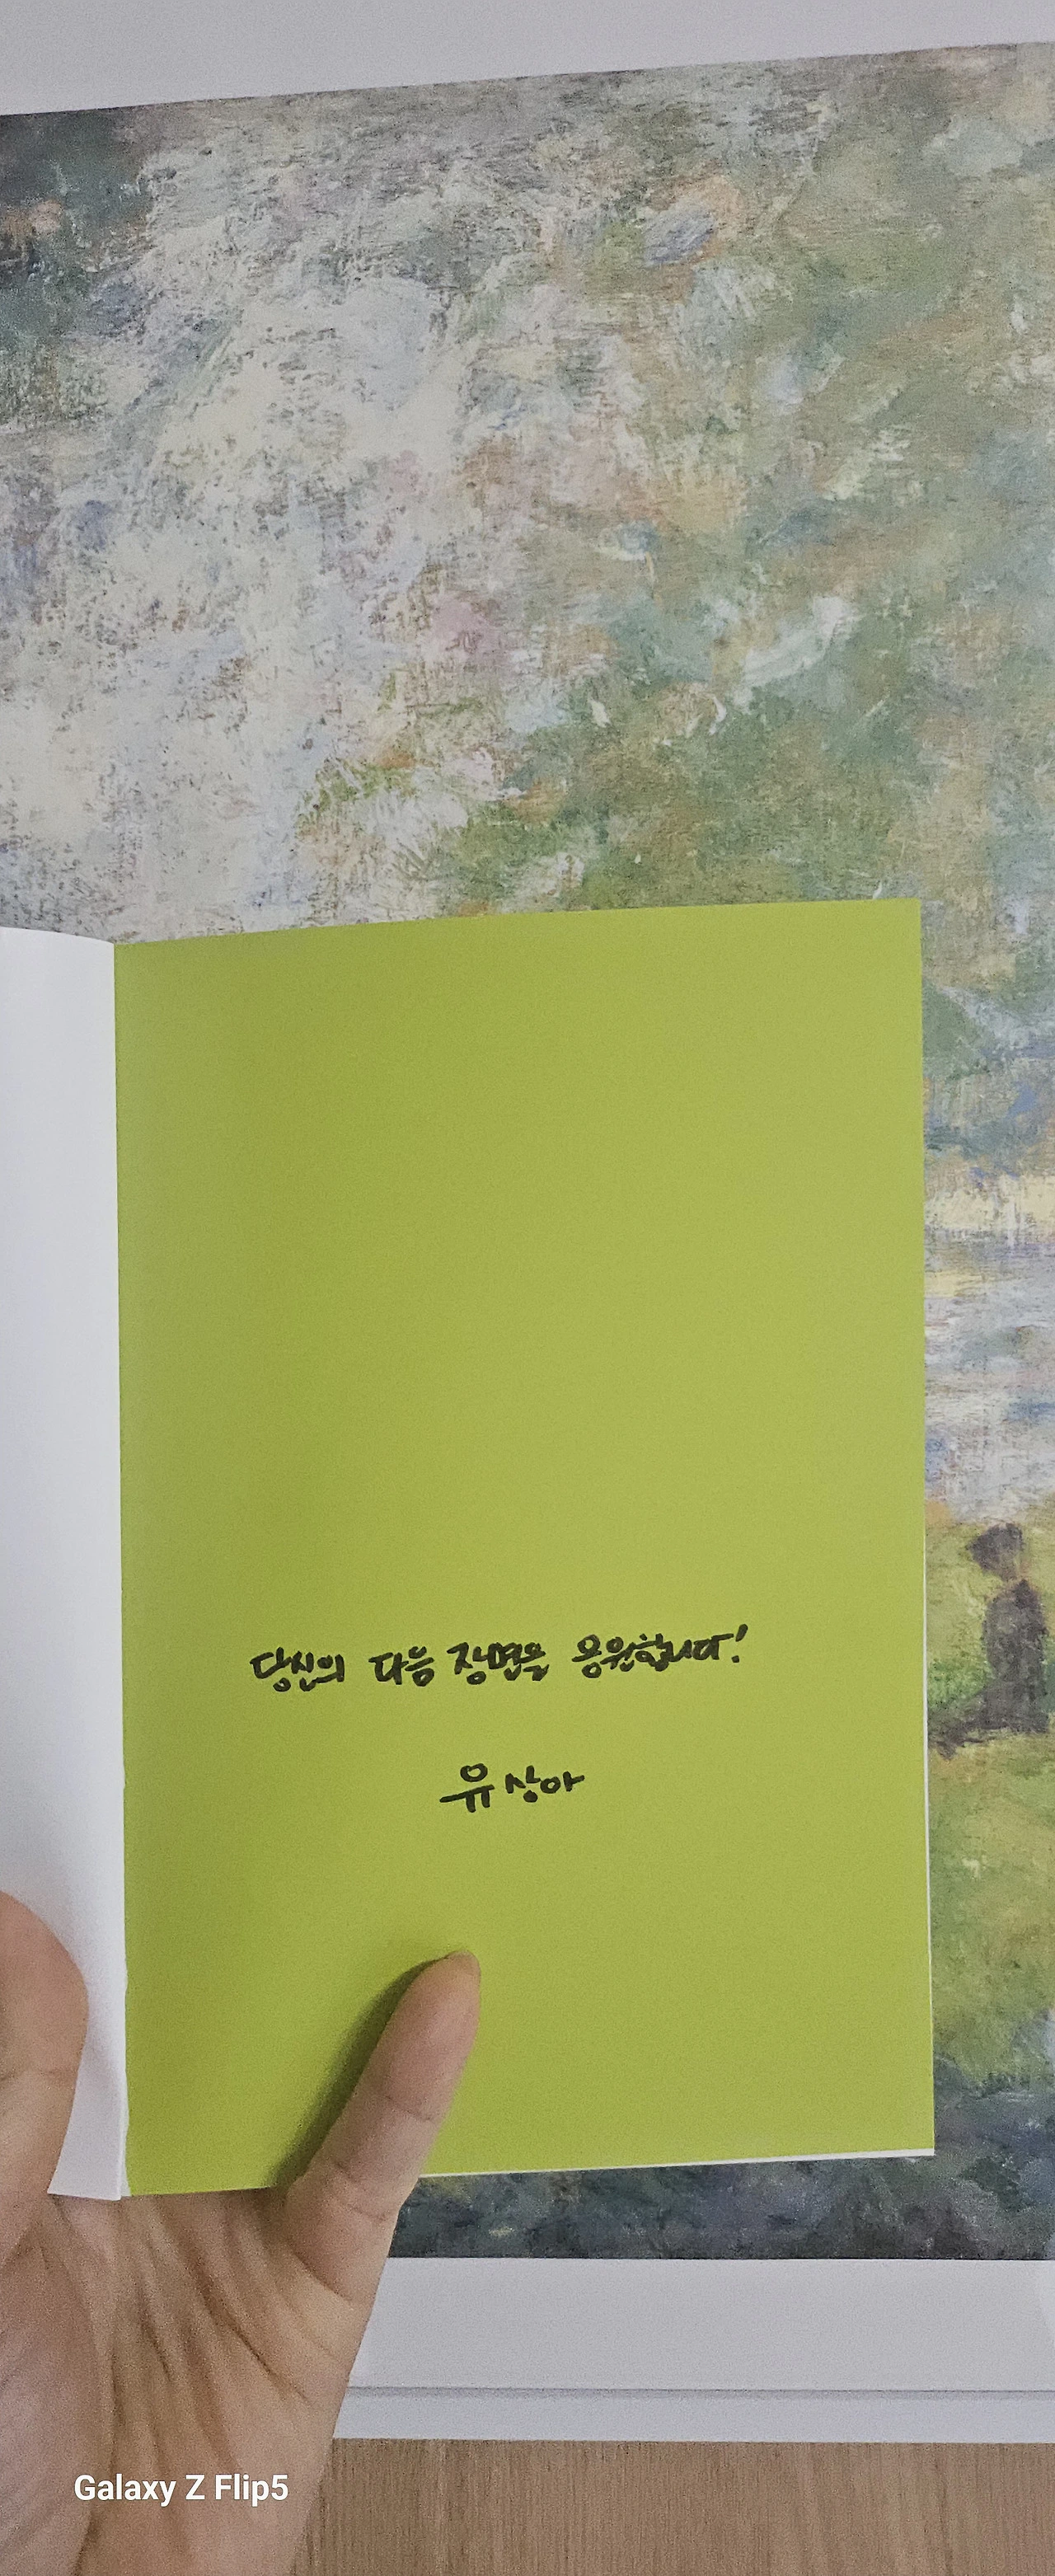 당신의 다음 장면을 응원합니다!
유상아
Galaxy Z Flip5